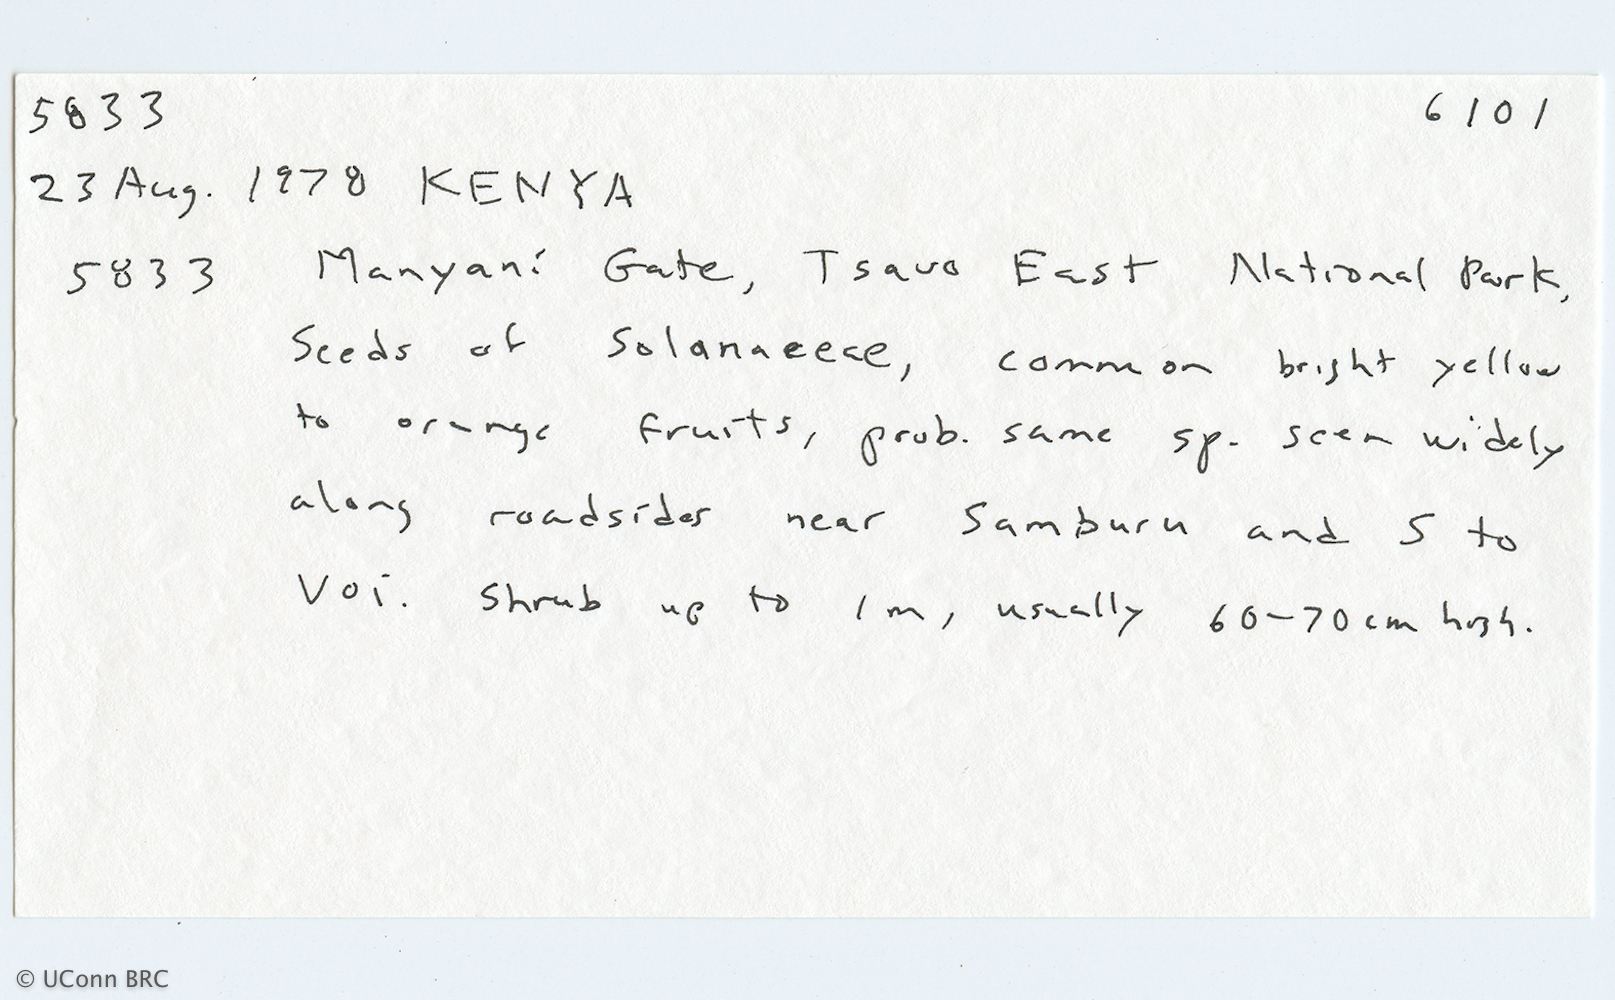 5833 6101
23 Aug. 1978 KENYA
5833 Manyani Gate, Tsavo East National Park,
Seeds of Solanaceae, common bright yellow
to orange fruits, prob. same sp. seen widely
along roadsides near Samburu and S to
Voi. Shrub up to 1m, usually 60-70cm high.
© UConn BRC